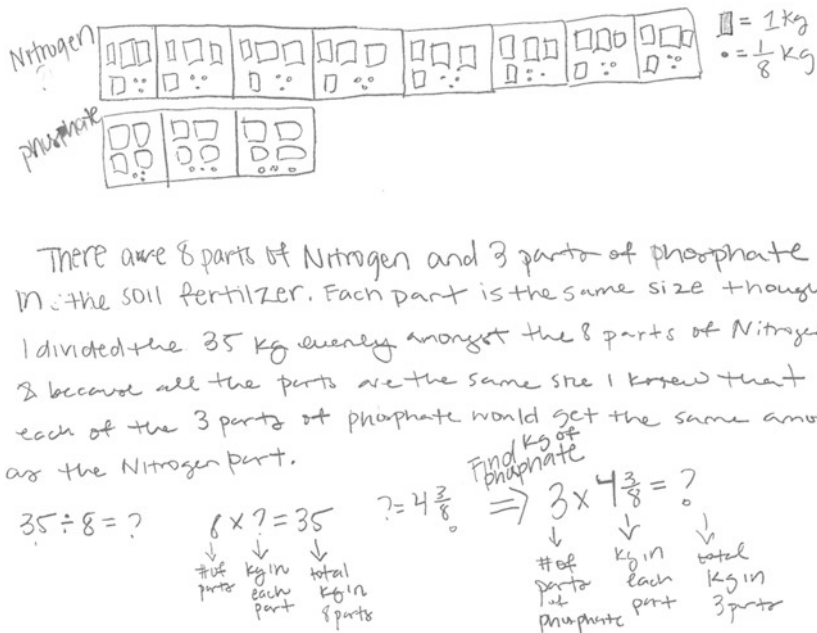 Nitrogen
?
= 1 kg
• = 1/8 kg
phosphate
There are 8 parts of Nitrogen and 3 parts of phosphate
in the soil fertilzer. Each part is the same size thoug
I divided the 35 kg evenly amongst the 8 parts of Nitrogen
& because all the parts are the same size I knew that
each of the 3 parts of phosphate would get the same amo
as the Nitrogen part.
Find kg of
phaphate
35 ÷ 8 = ? 8 × ? = 35 ? = 4 3/8 ⇒ 3 × 4 3/8 = ?
# of parts
kg in each part
total kg in 8 parts
# of parts of phosphate
kg in each part
total kg in 3 parts